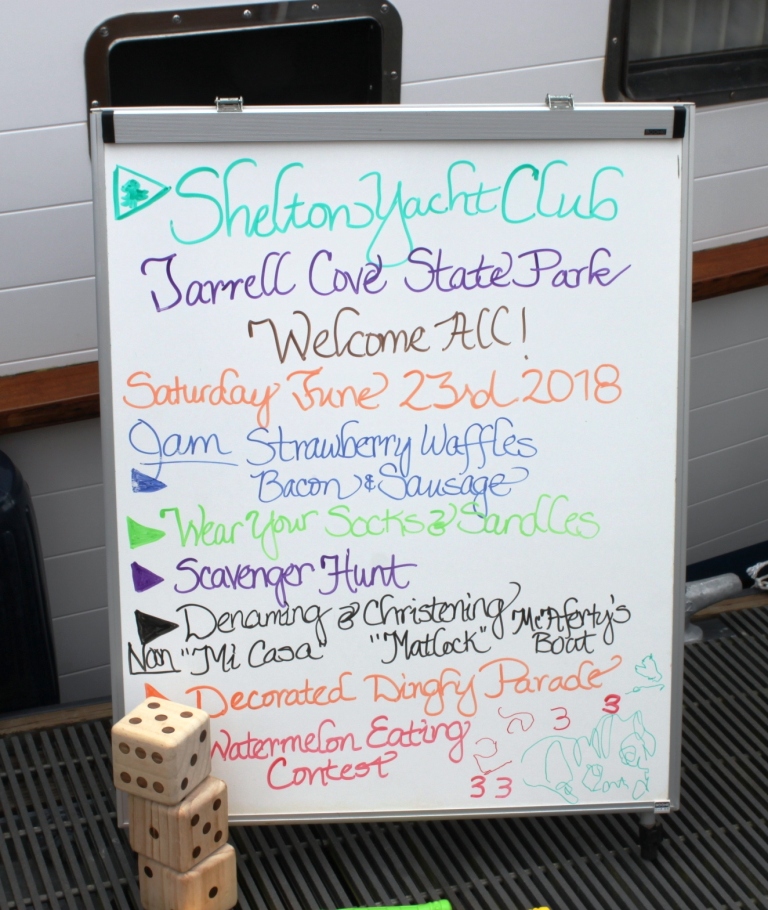 Shelton Yacht Club
Jarrell Cove State Park
Welcome All!
Saturday June 23rd 2018
9am Strawberry Waffles
Bacon & Sausage
Wear Your Socks & Sandles
Scavenger Hunt
Denaming & Christening McAferty's
Noon "Mi Casa" "Matlock" Boat
Decorated Dinghy Parade
Watermelon Eating
Contest
3
3
3 3